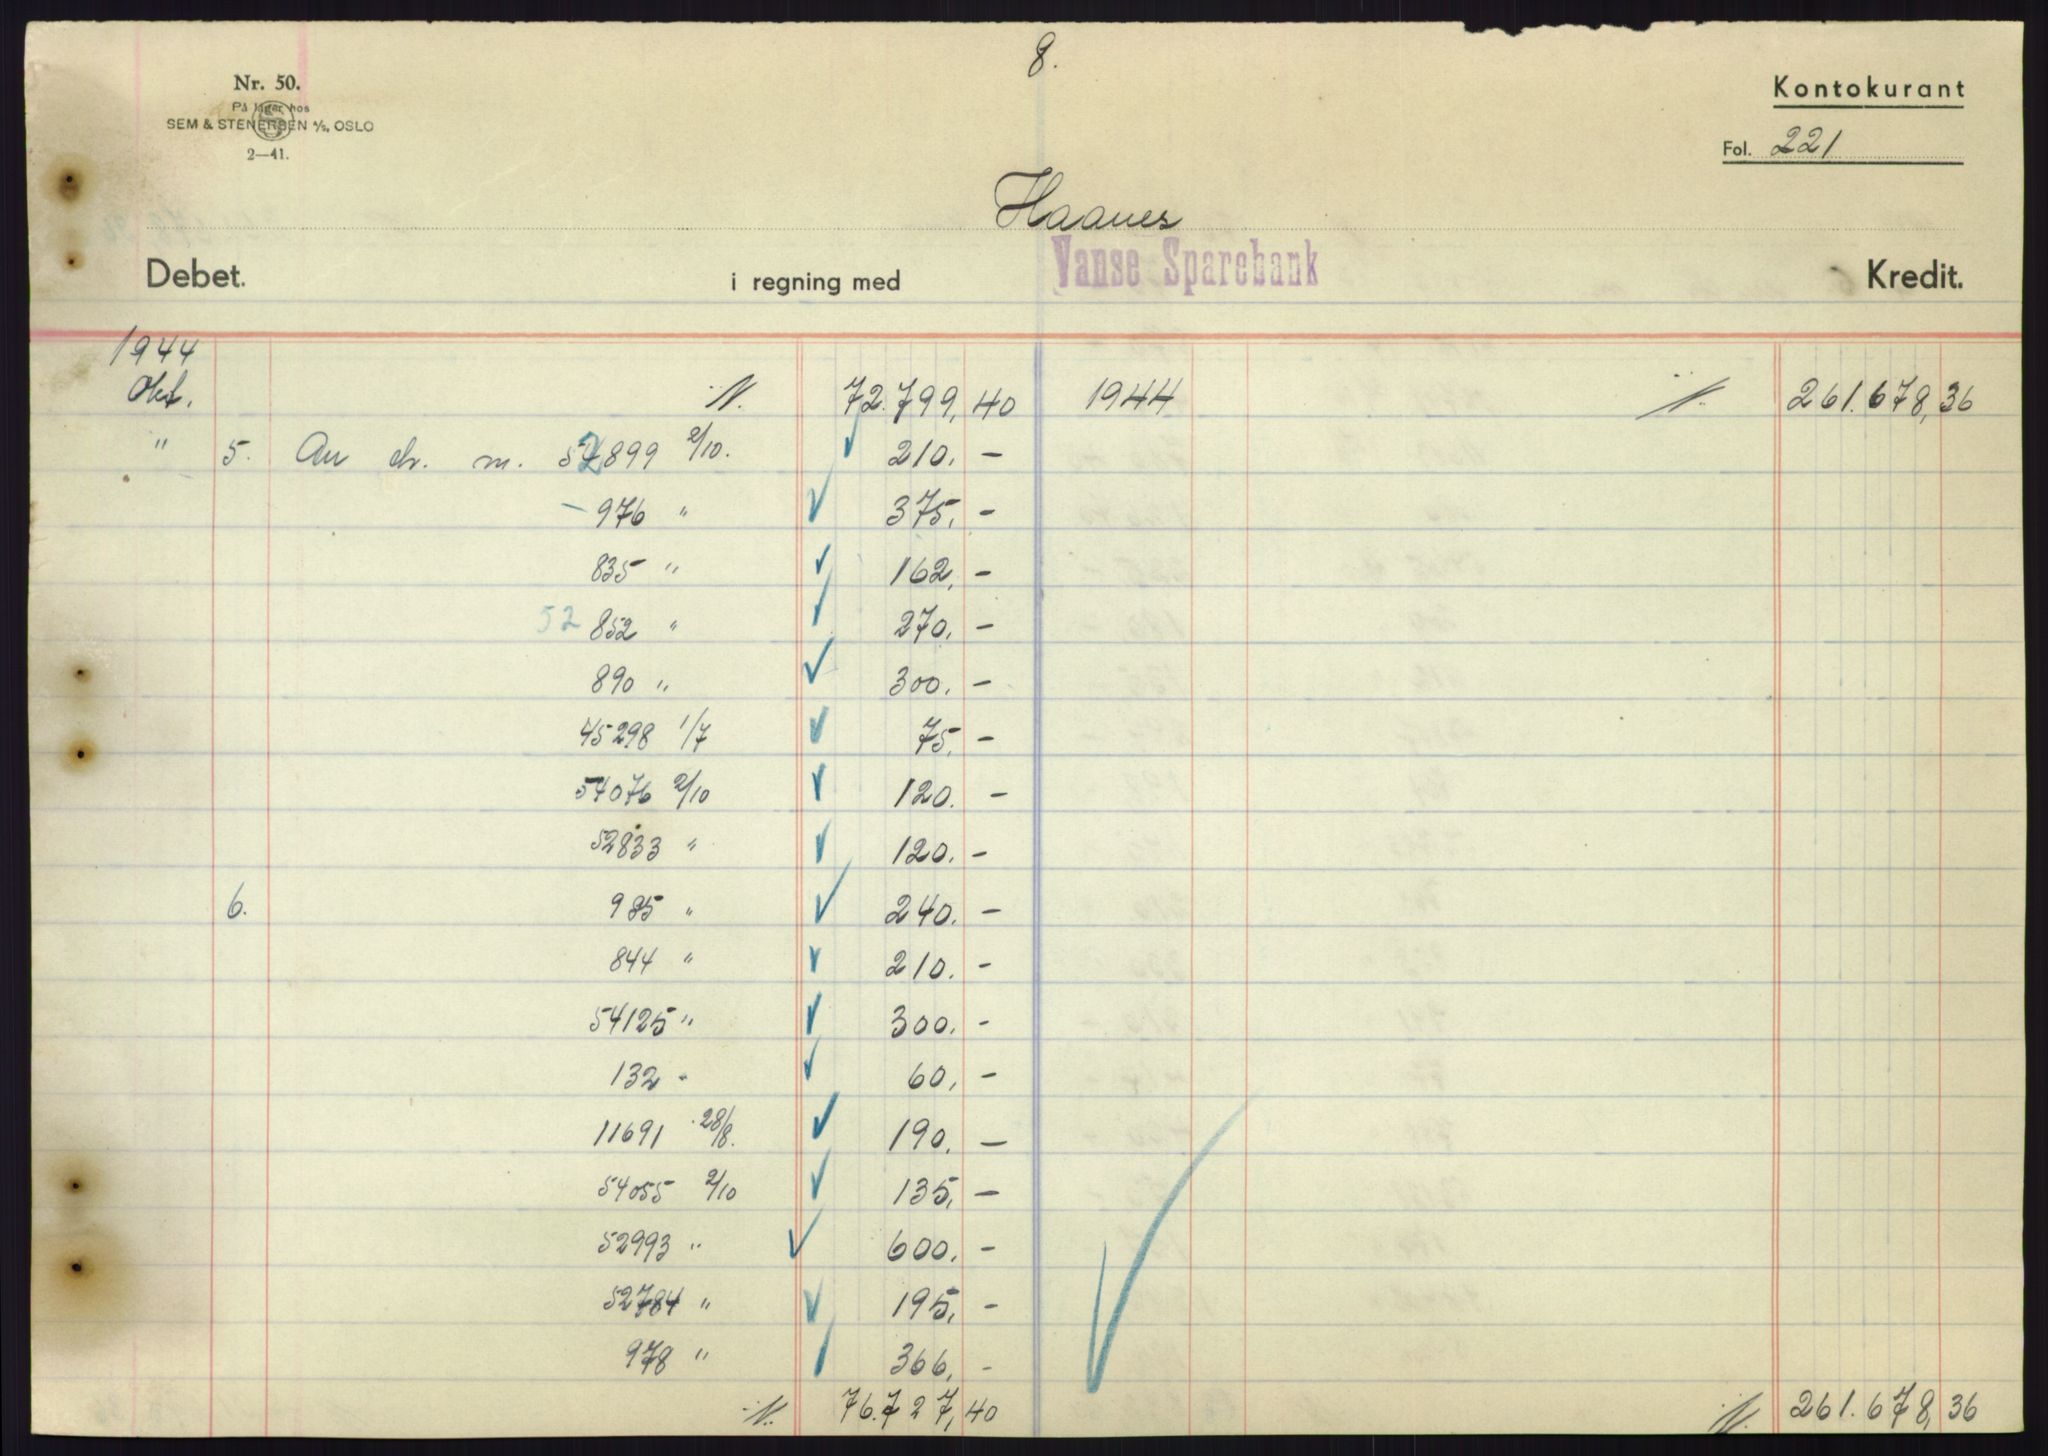 8.
Nr. 50.
På lager hos
SEM & STENERSEN A/S, OSLO
2—41.
Kontokurant
Fol. 221
Haanes
Debet. i regning med Vanse Sparebank Kredit.
1944
Okt. 72.799,40 1944 261.678,36
" 5. An ch. m. 52899 2/10. 210. —
— 976 " 375. —
835 " 162. —
52 852 " 270. —
890 " 300. —
45298 1/7 75. —
54076 2/10 120. —
52833 " 120. —
6. 985 " 240. —
844 " 210. —
54125 " 300. —
132 - 60. —
11691 28/8. 190. —
54055 2/10 135. —
52993 " 600. —
52784 " 195. —
978 " 366. -
76.727,40 261.678,36